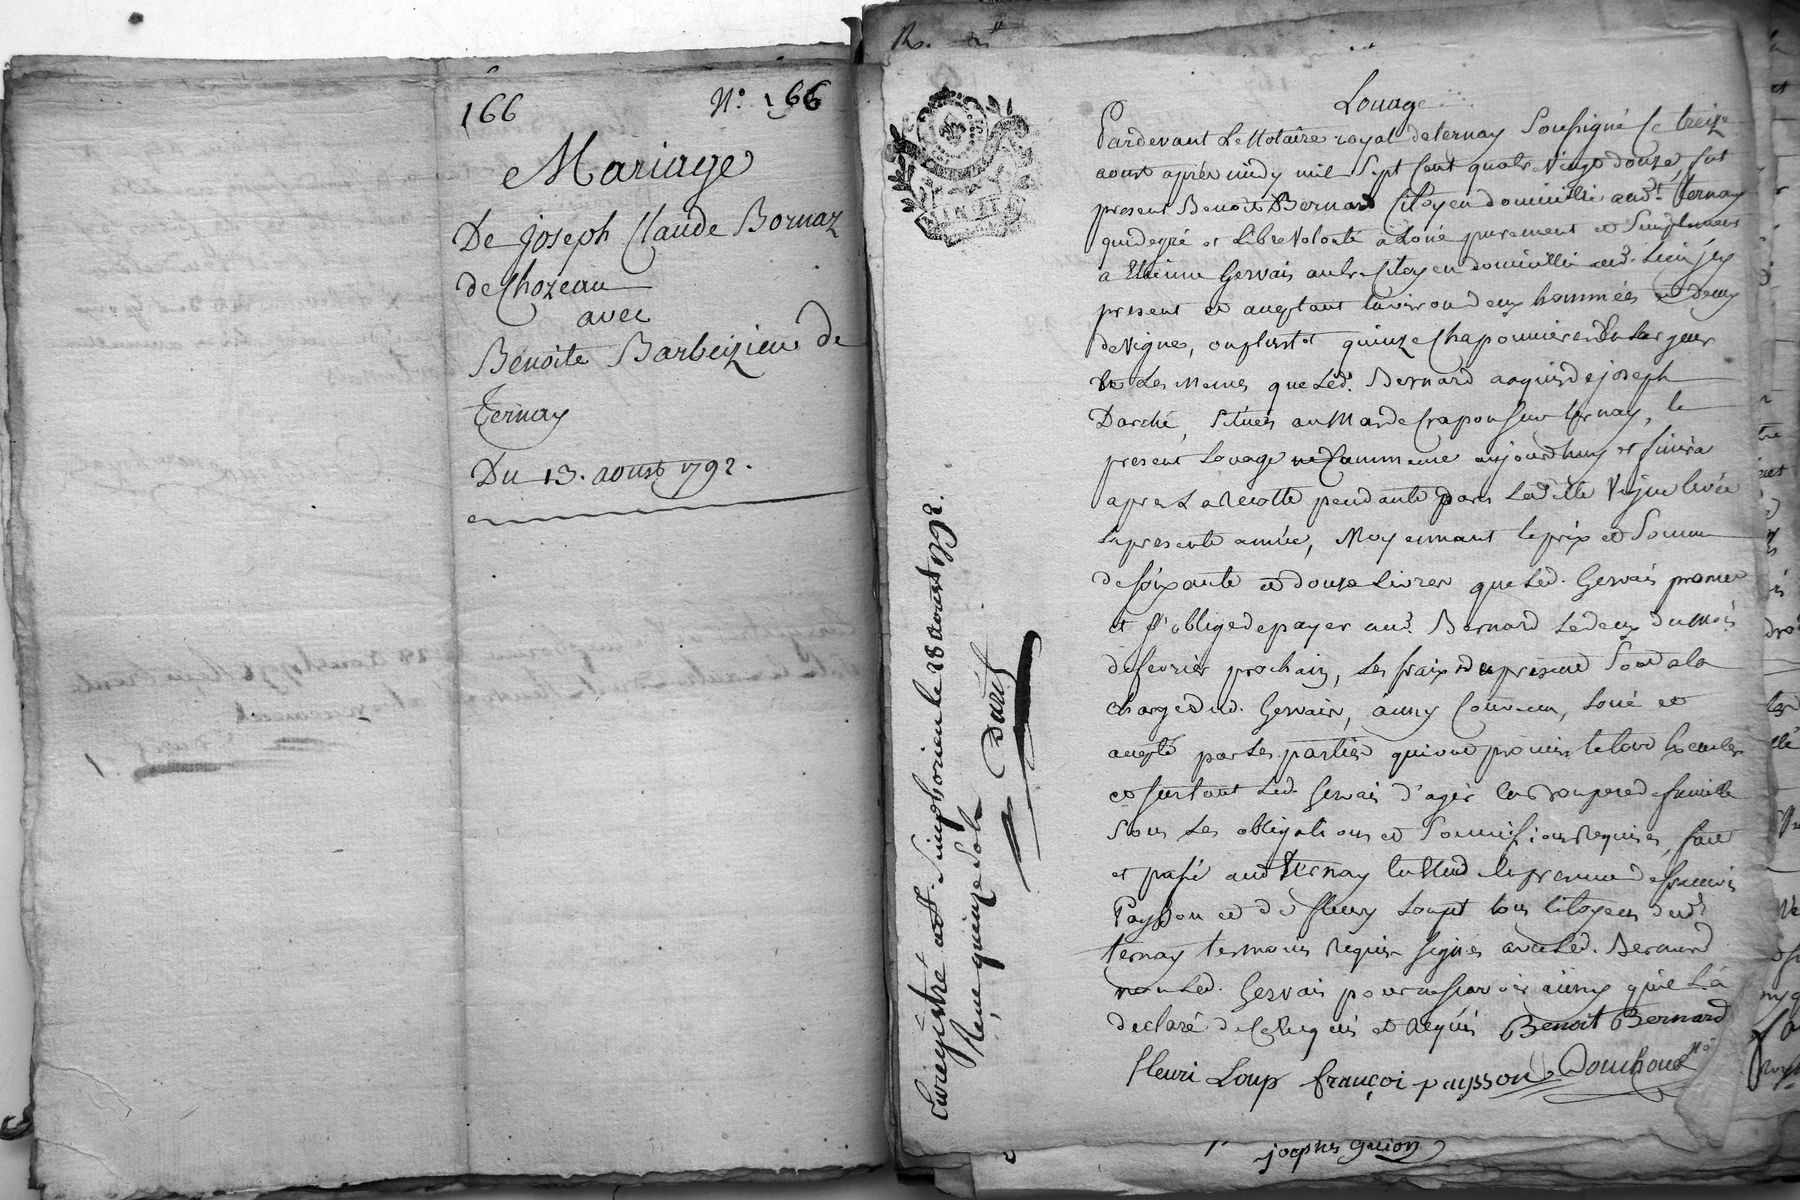 166 N.° 166
Mariage
De joseph Claude Bornaz
de Chozeau
avec
Benoite Barbezieu de
Ternay
Du 13. aoust 1792.
Louage
Pardevant Le Notaire royal de ternay Soussigné Ce treize
aoust après midy mil Sept Cent quatre Vingt douze, fut
present Benoit Bernard Citoyen domicillié aud.t ternay
qui de gré et Libre Volonté a Loué purement et Simplement
a Etienne Gervais autre Citoyen domicillié aud. Lieu jcy
present et aceptant Environ deux hommées et demy
de Vigne, ou plustot quinze Chaponnieres En Largeur
Les Memes que Led. Bernard acquis de joseph
Darché, Situés au Mas de Crapon Sur ternay, Le
present Louage Commence aujourdhuy et finira
apres La Recolte pendante dans Laditte Vigne Levée
La presente année, Moyennant le prix et Somme
de soixante et douze Livres que Led. Gervais promet
et s'oblige de payer aud. Bernard Le deux du Mois
de fevrier prochain, Les fraix du present Sont a la
charge dud. Gervais, ainsy Convenu, Loué et
accepté par Les parties qui ont promis le tout
et surtout Led. Gervais d'agir En bon pere de famille
Sous Les obligations et Requises, fait
et passé aud. ternay En Etude En presence de francois
Paysson et de fleury Loup tous Citoyens dud.t
ternay temoins Requis Signés avec Led. Bernard
non Led. Gervais pour ne sçavoir ainsy qu'il L'a
declaré de Ce Enquis et Requis Benoit Bernard
fleuri Loup françoi paysson Douchoux N.re
josephes guion
Enregistré a St. Simphorien le 28 aoust 1792.
Reçu quinze sols